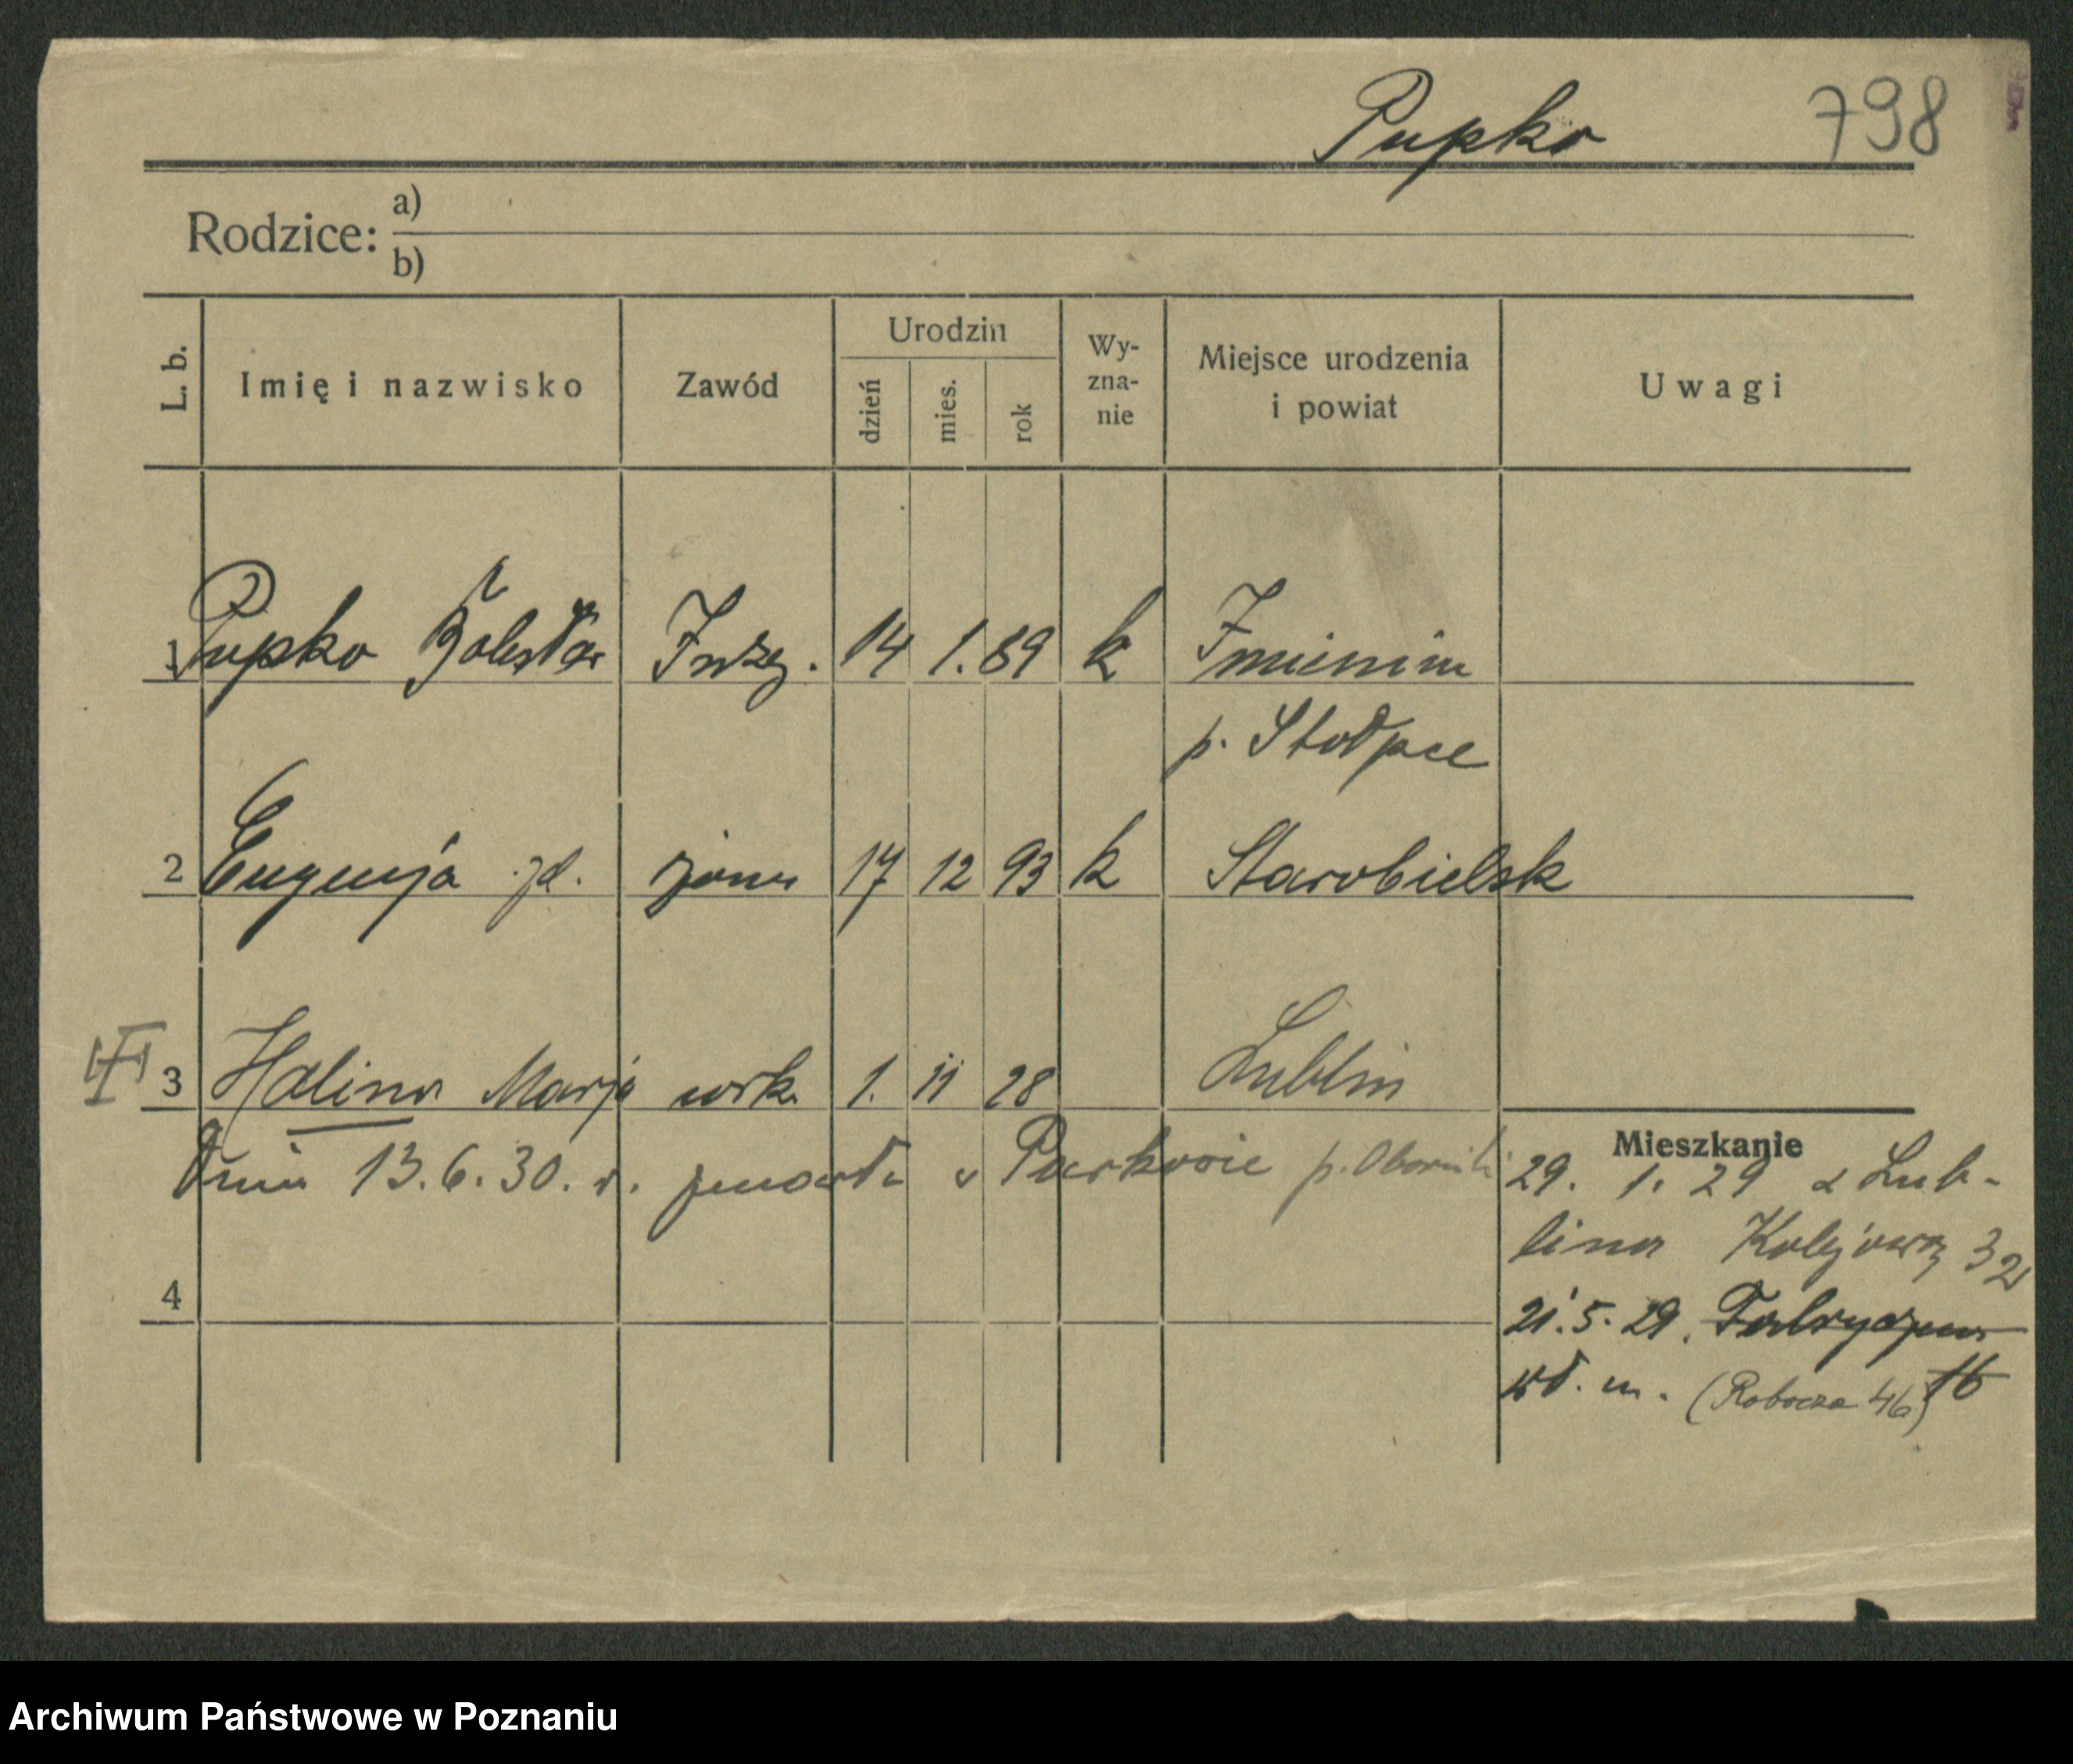 Pupko 798
Rodzice: a)
b)
L. b. Imię i nazwisko Zawód Urodzin dzień mies. rok Wy-zna-nie Miejsce urodzenia i powiat Uwagi
1 Pupko Bolesław Inży. 14 1. 89 k
p. Stołpce
2 Eugenja żona 17 12 93 k Starobielsk
3 Halina Marja crk. 1. 11 28 Lublin
Dnia 13.6.30. r. zmarła w Parkowie p. Oborniki
Mieszkanie
29. 1. 29 z Lub-
lina Kolejowa 32
4
21.5.29. Fabryczna
wł. m. (Robocza 46) 16
Archiwum Państwowe w Poznaniu